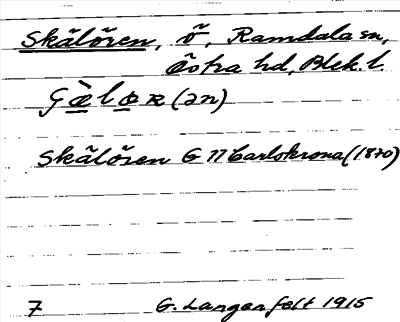 Skälören, ö, Ramdala sn,
Östra hd, Blek. l.
Skälören G 11 Carlskrona (1870)
7 G. Langenfelt 1915